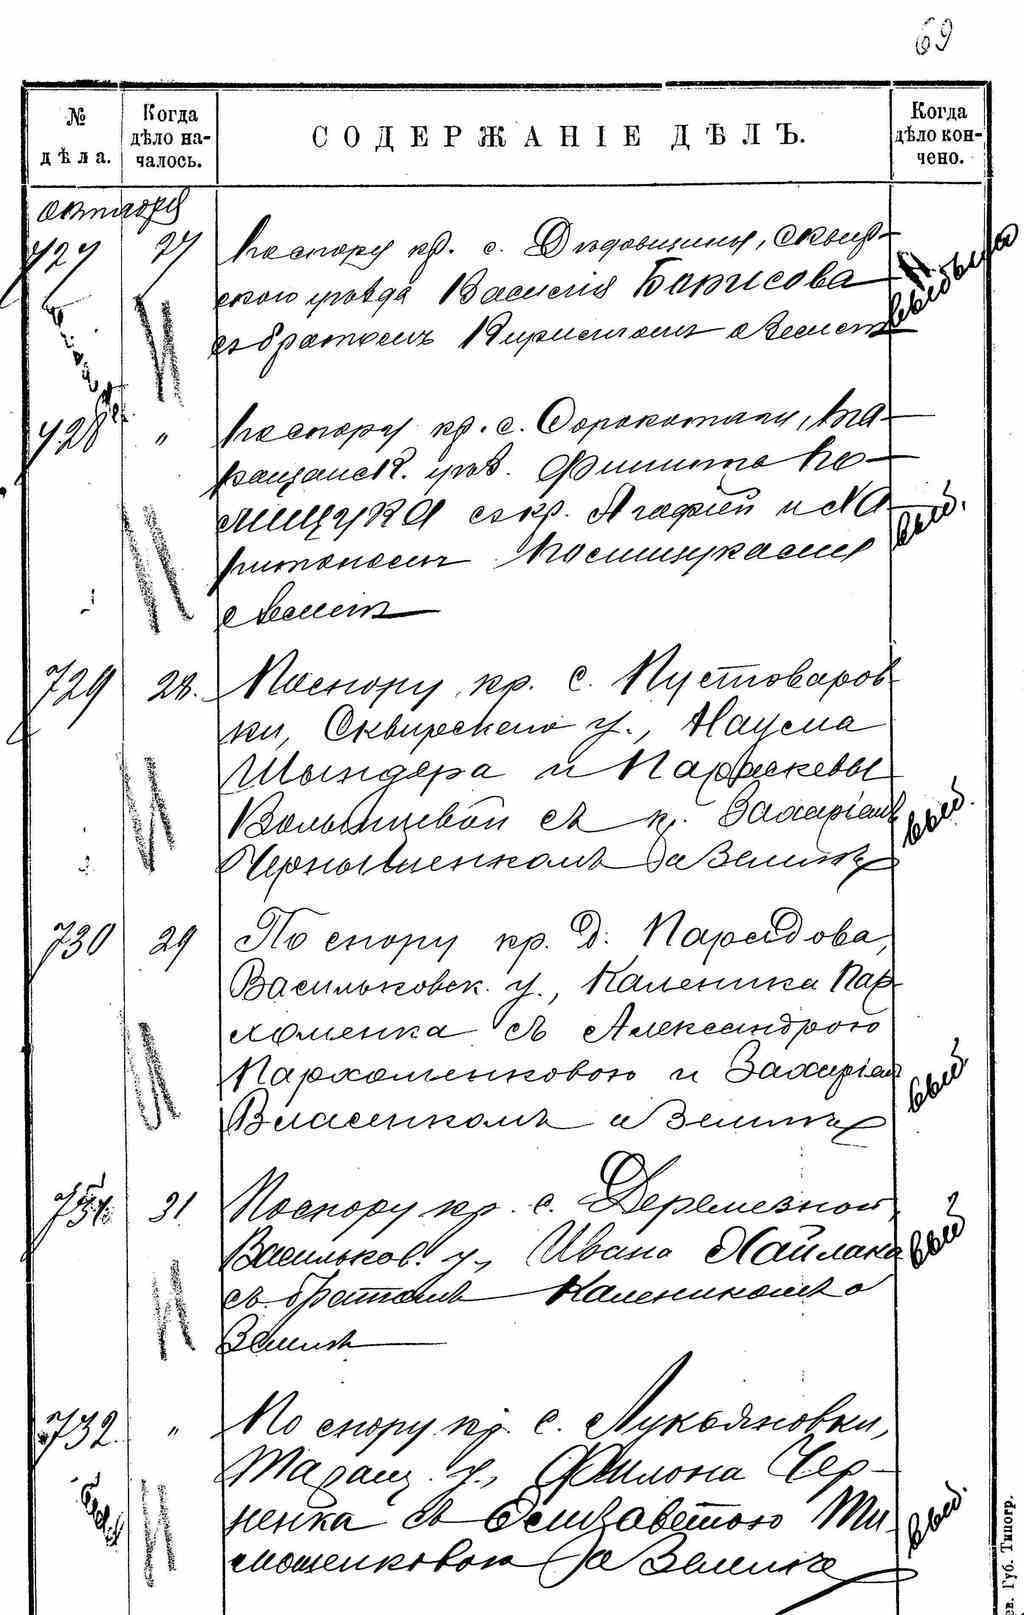 69
№ дѣла.
Когда дѣло началось.
СОДЕРЖАНІЕ ДѢЛЪ.
Когда дѣло кончено.
октября
727 27 По спору кр. с. Дидовщины, Сквир-
ского уѣзда Василія Борисова
съ братомъ Кирилломъ о землѣ
выбыла
728 „ По спору кр. с. Сорокотяги, Та-
ращанск. уѣз. Филиппа По-
лищука съ кр. Агафіей и Ха-
ритономъ Полищуками
о землѣ
выб.
729 28. По спору кр. с. Пустоваров-
ки, Сквирского у., Наума
Шындера и Параскевы
Волынцевой съ к. Захаріемъ
Чернышенкомъ о землѣ
выб.
730 29 По спору кр. д. Парадова,
Васильковск. у., Каленика Пар-
хоменка съ Александрою
Пархоменковою и Захаріемъ
Власенкомъ о землѣ
выб.
731. 31 По спору кр. с. Деремезной,
Васильков. у., Ивана Хайлака
съ братомъ Калеником о
землѣ
выб.
732. „ По спору кр. с. Лукьяновки,
Таращ. у., Филона Чер-
ненка съ Елизаветою Ти-
мошенковою о землѣ
выб.
ев. Губ. Типогр.